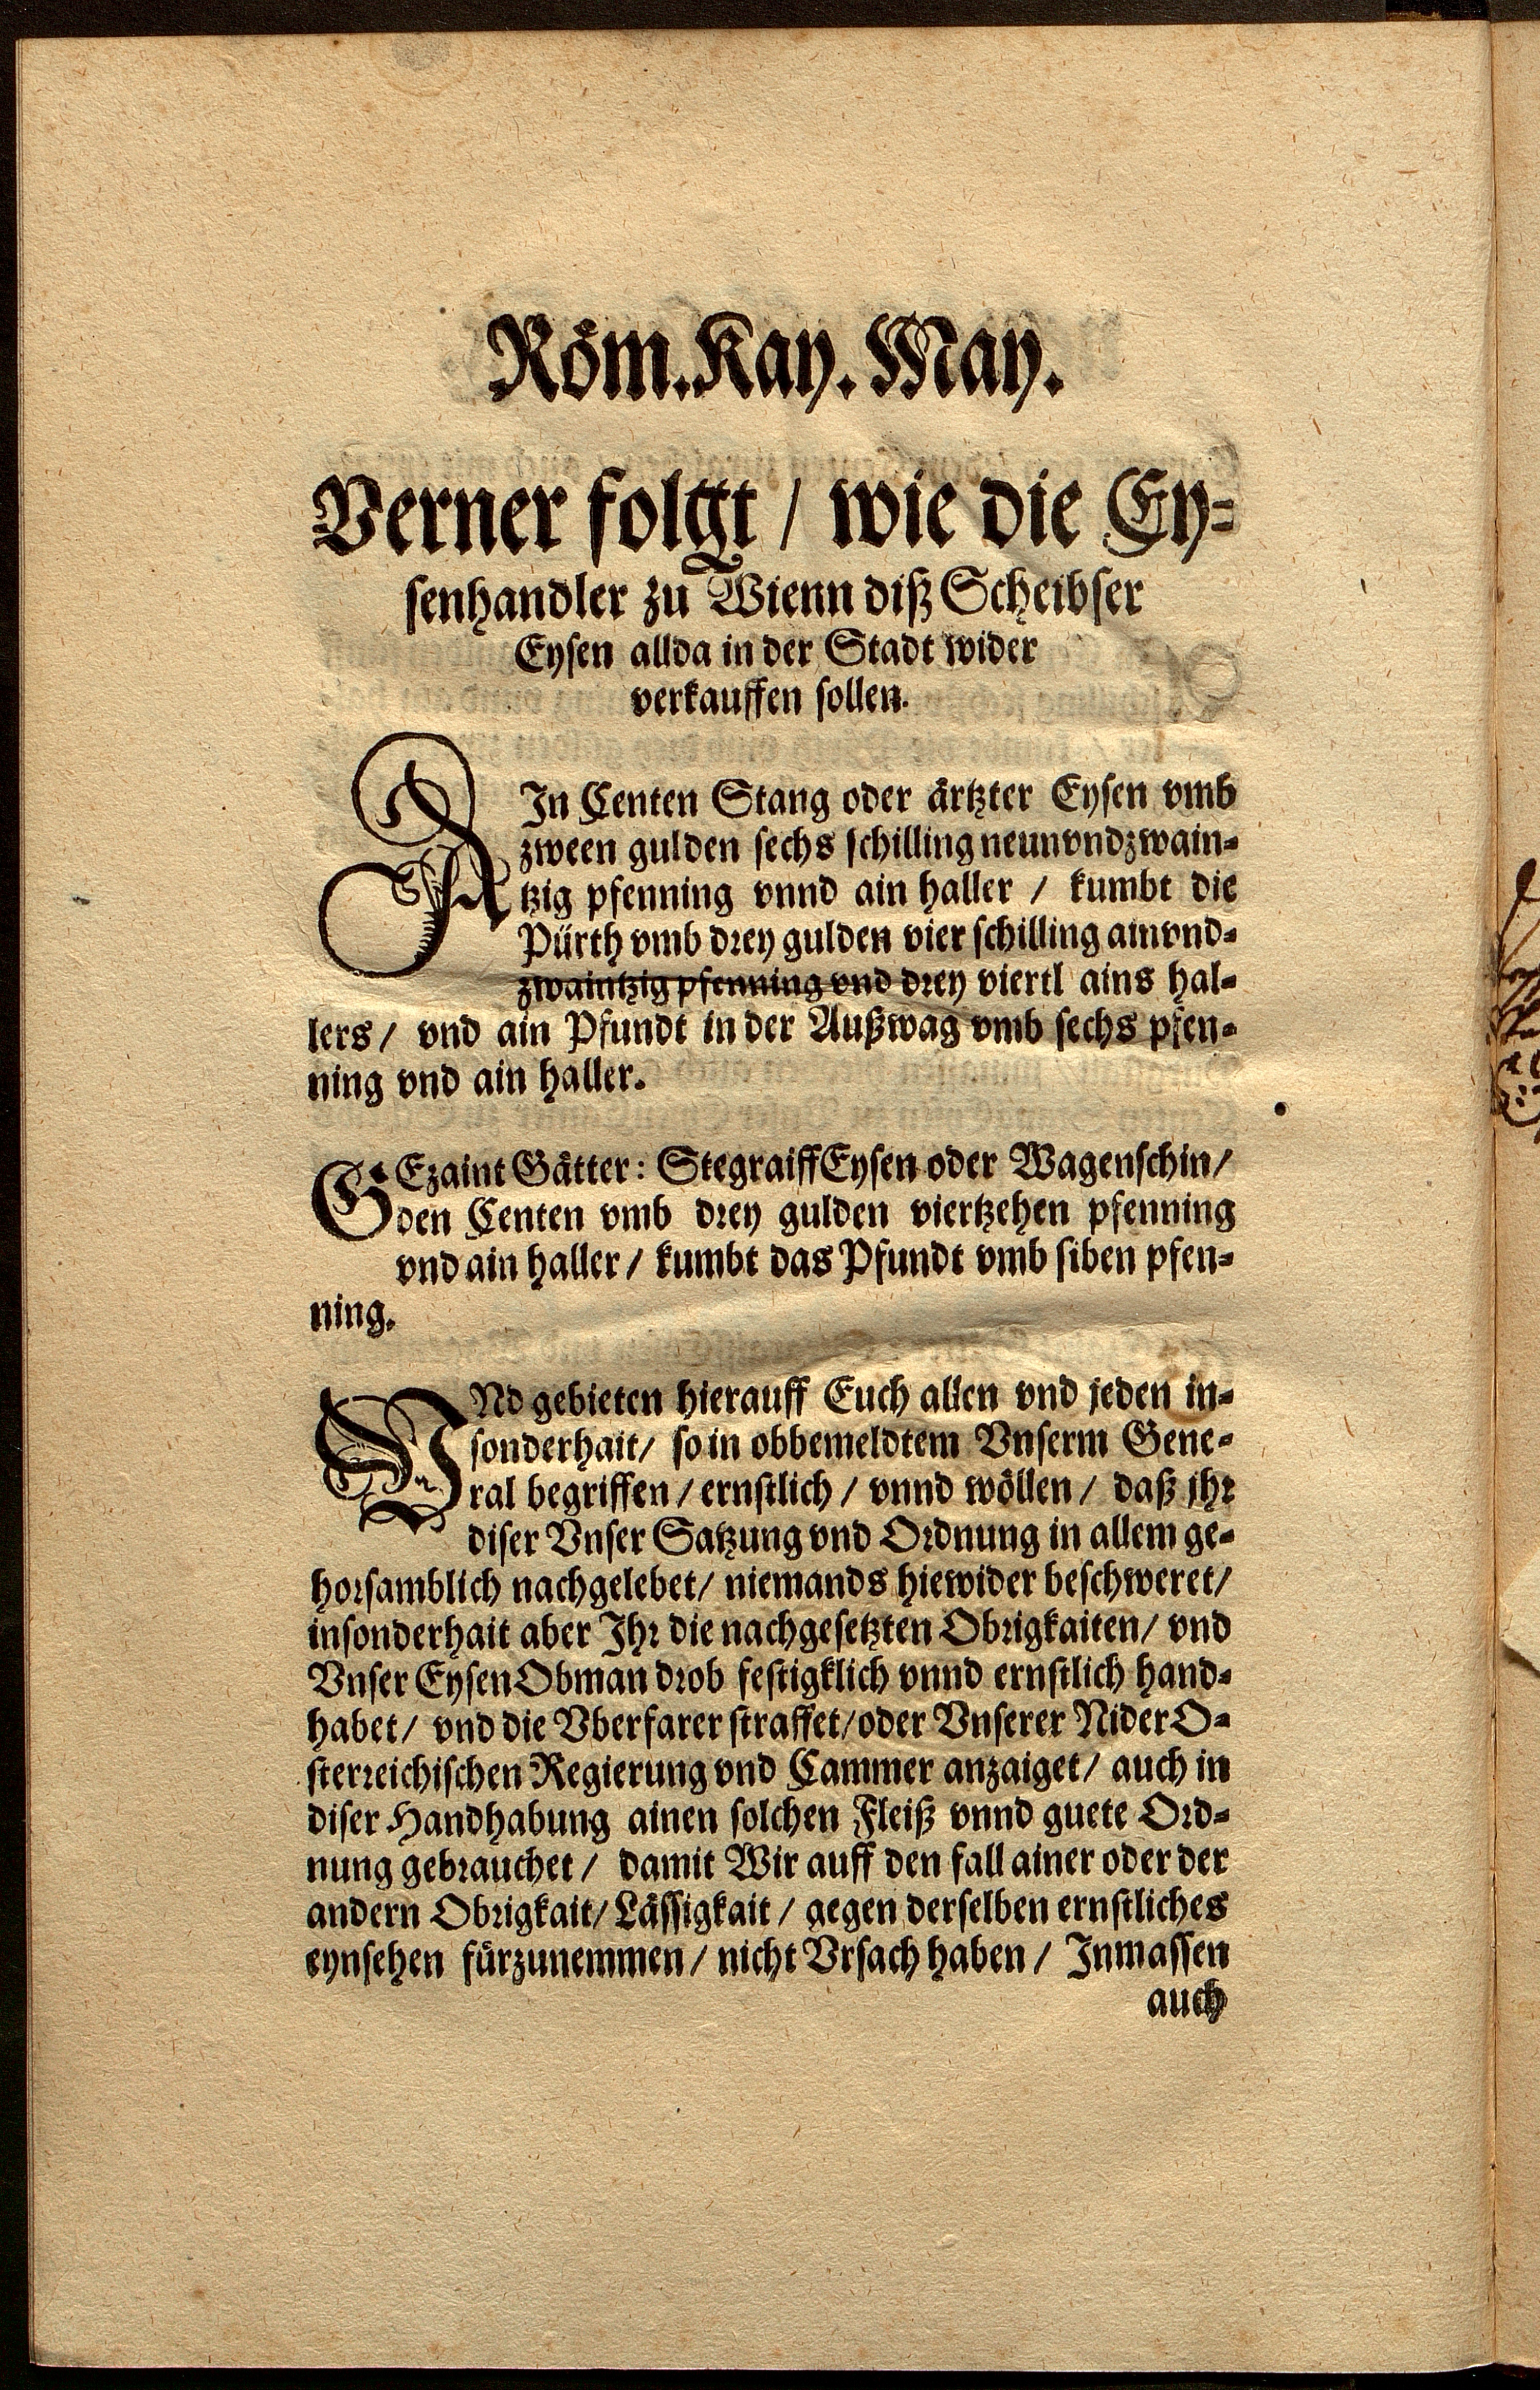 Röm. Kay. May.
Verner folgt / wie die Ey-
senhandler zu Wienn diß Scheibser
Eysen allda in der Stadt wider
verkauffen sollen.
AIn Centen Stang oder ärtzter Eysen vmb
zween gulden sechs schilling neunvndzwain-
tzig pfenning vnnd ain haller / kumbt die
Pürth vmb drey gulden vier schilling ainvnd-
zwaintzig pfenning vnd drey viertl ains hal-
lers / vnd ain Pfundt in der Außwag vmb sechs pfen-
ning vnd ain haller.
GEzaint Gätter: StegraiffEysen oder Wagenschin /
den Centen vmb drey gulden viertzehen pfenning
vnd ain haller / kumbt das Pfundt vmb siben pfen-
ning.
VNd gebieten hierauff Euch allen vnd jeden in-
sonderhait / so in obbemeldtem Vnserm Gene-
ral begriffen / ernstlich / vnnd wöllen / daß jhr
diser Vnser Satzung vnd Ordnung in allem ge-
horsamblich nachgelebet / niemands hiewider beschweret /
insonderhait aber Ihr die nachgesetzten Obrigkaiten / vnd
Vnser EysenObman drob festigklich vnnd ernstlich hand-
habet / vnd die Vberfarer straffet / oder Vnserer NiderO-
sterreichischen Regierung vnd Cammer anzaiget / auch in
diser Handhabung ainen solchen Fleiß vnnd guete Ord-
nung gebrauchet / damit Wir auff den fall ainer oder der
andern Obrigkait / Lässigkait / gegen derselben ernstliches
eynsehen fürzunemmen / nicht Vrsach haben / Inmassen
auch